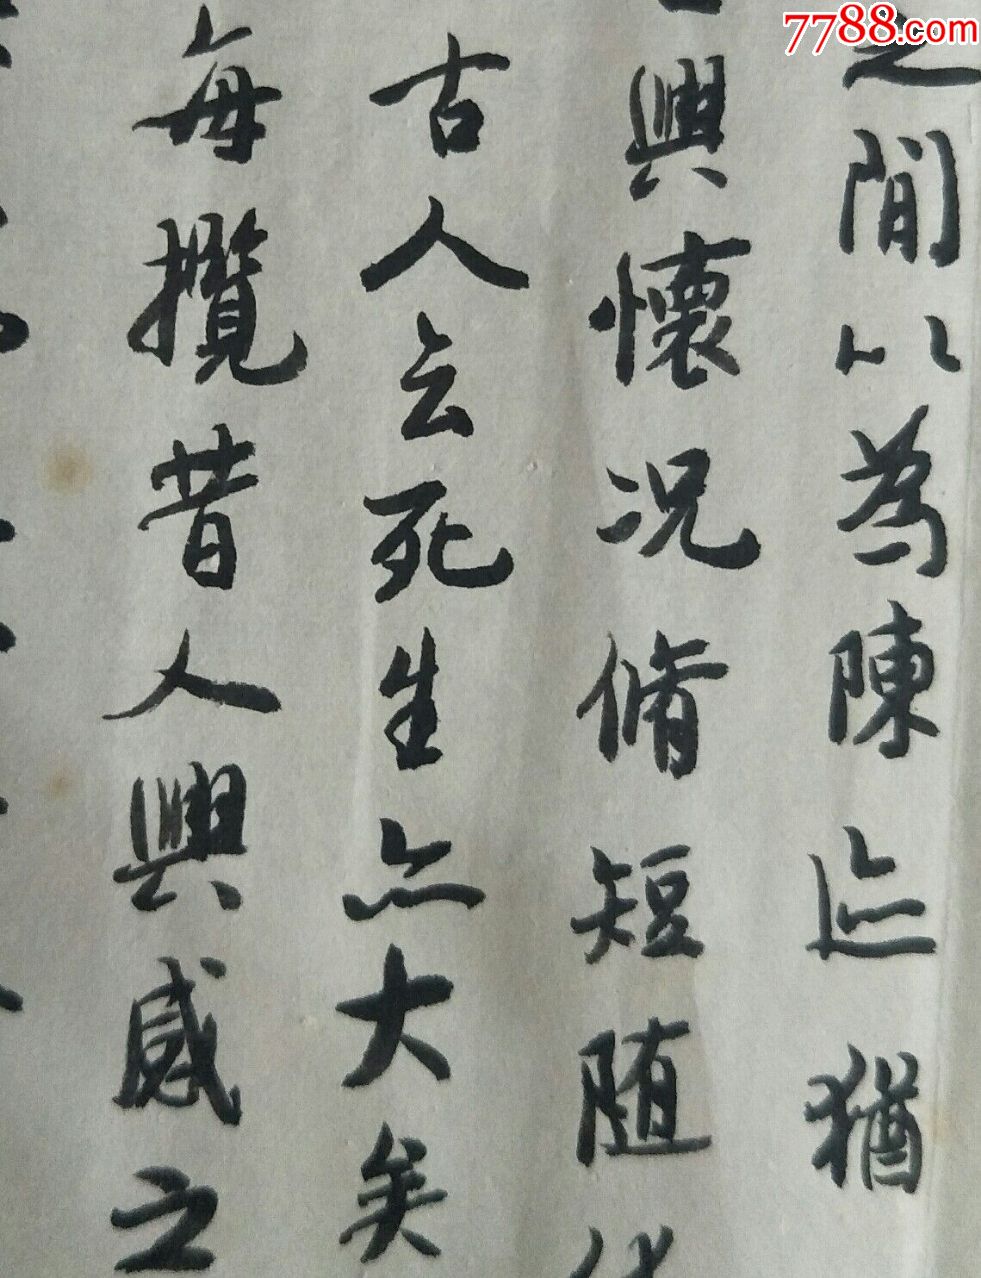 7788.com
之間以為陳迹猶
興懷况脩短随化
古人云死生亦大矣
每攬昔人興感之